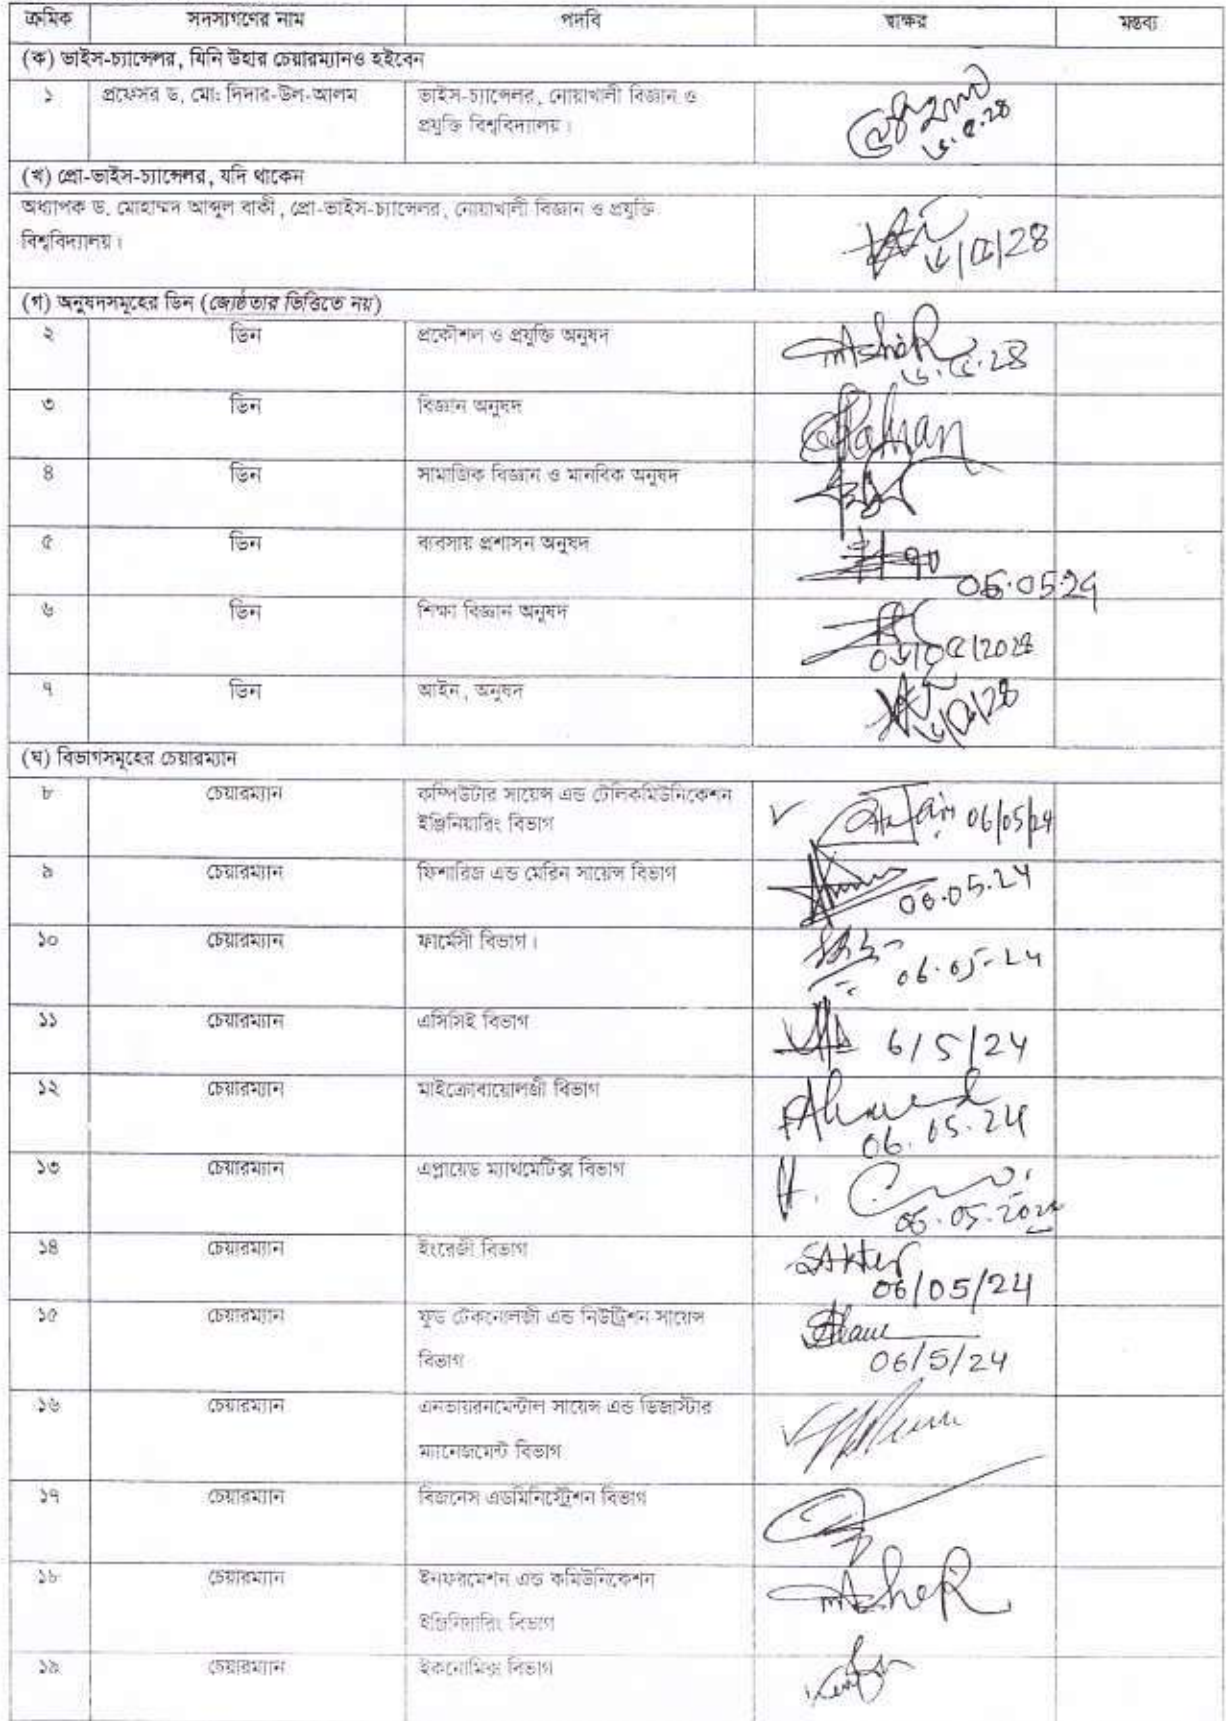 ক্রমিক সদস্যগণের নাম পদবি স্বাক্ষর মন্তব্য
(ক) ভাইস-চ্যান্সেলর, যিনি উহার চেয়ারম্যানও হইবেন
১ প্রফেসর ড. মো: দিদার-উল-আলম ভাইস-চ্যান্সেলর, নোয়াখালী বিজ্ঞান ও
প্রযুক্তি বিশ্ববিদ্যালয়।
৬.৫.২৪
(খ) প্রো-ভাইস-চ্যান্সেলর, যদি থাকেন
অধ্যাপক ড. মোহাম্মদ আব্দুল বাকী, প্রো-ভাইস-চ্যান্সেলর, নোয়াখালী বিজ্ঞান ও প্রযুক্তি
বিশ্ববিদ্যালয়।
৬/৫/২৪
(গ) অনুষদসমূহের ডিন (জ্যেষ্ঠতার ভিত্তিতে নয়)
২ ডিন প্রকৌশল ও প্রযুক্তি অনুষদ
৬.৫.২৪
৩ ডিন বিজ্ঞান অনুষদ
৪ ডিন সামাজিক বিজ্ঞান ও মানবিক অনুষদ
৫ ডিন ব্যবসায় প্রশাসন অনুষদ
06.05.24
৬ ডিন শিক্ষা বিজ্ঞান অনুষদ
০৬/০৫/২০২৪
৭ ডিন আইন, অনুষদ
৬/৫/২৪
(ঘ) বিভাগসমূহের চেয়ারম্যান
৮ চেয়ারম্যান কম্পিউটার সায়েন্স এন্ড টেলিকমিউনিকেশন
ইঞ্জিনিয়ারিং বিভাগ
06/05/24
৯ চেয়ারম্যান ফিশারিজ এন্ড মেরিন সায়েন্স বিভাগ
06.05.24
১০ চেয়ারম্যান ফার্মেসী বিভাগ।
06-05-24
১১ চেয়ারম্যান এসিসিই বিভাগ
6/5/24
১২ চেয়ারম্যান মাইক্রোবায়োলজী বিভাগ
06.05.24
১৩ চেয়ারম্যান এপ্লায়েড ম্যাথমেটিক্স বিভাগ
06.05.2024
১৪ চেয়ারম্যান ইংরেজী বিভাগ
SAkter
06/05/24
১৫ চেয়ারম্যান ফুড টেকনোলজী এন্ড নিউট্রিশন সায়েন্স
বিভাগ
06/5/24
১৬ চেয়ারম্যান এনভায়রনমেন্টাল সায়েন্স এন্ড ডিজাস্টার
ম্যানেজমেন্ট বিভাগ
১৭ চেয়ারম্যান বিজনেস এডমিনিস্ট্রেশন বিভাগ
১৮ চেয়ারম্যান ইনফরমেশন এন্ড কমিউনিকেশন
ইঞ্জিনিয়ারিং বিভাগ
১৯ চেয়ারম্যান ইকনোমিক্স বিভাগ